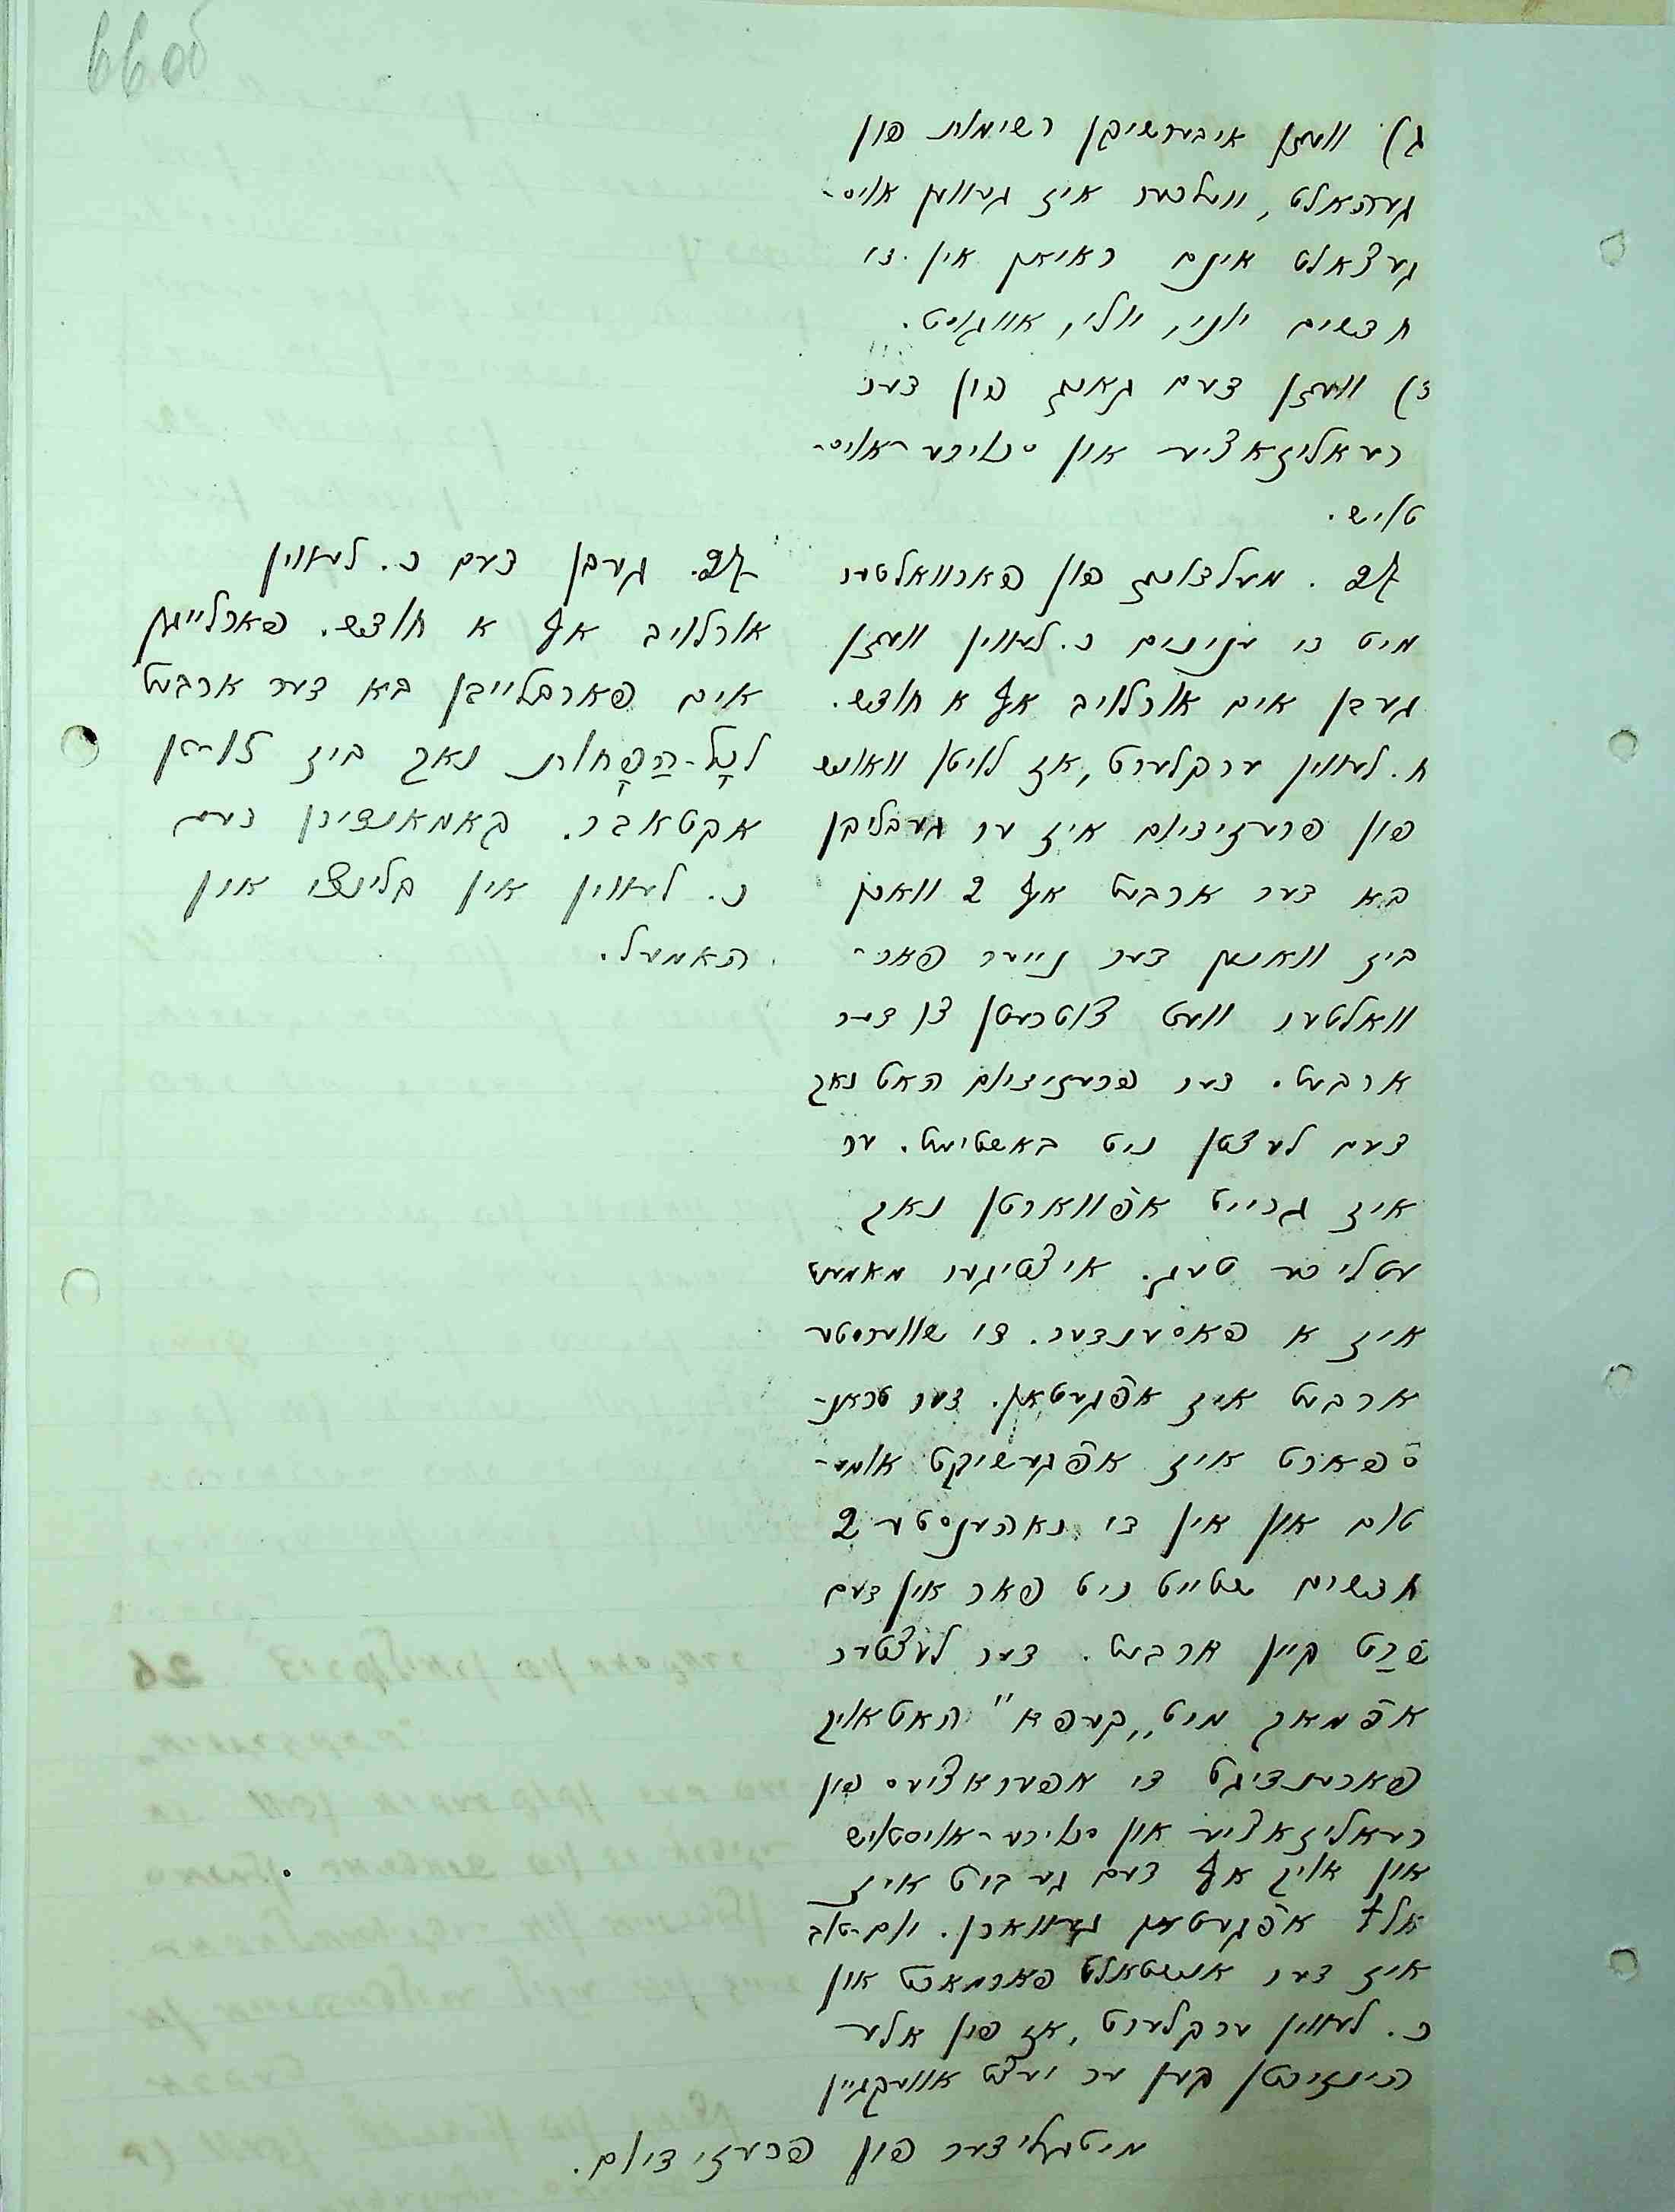 66 об
ג) וועגן איבערשיקן רשימות פון
געהאלט, וועלכער איז געווען אויס-
געצאלט אינם ראיאן אין די
חדשים יוני, יולי, אווגוסט.
ד) וועגן דעם גאנג פון דער
רעאליזאציע און סחורה-אויס-
טויש.
27. מעלדונג פון פארוואלטער
מיט די ענינים ח. לעווין וועגן
געבן אים אורלויב אף א חודש.
ח. לעווין ערקלערט, אז לויטן וואונש
פון פרעזידיום איז ער געבליבן
בא דער ארבעט אף 2 וואכן
ביז וואנען דער נייער פאר-
וואלטער וועט צוטרעטן צו דער
ארבעט. דער פרעזידיום האט נאך
דעם לעצטן ניט באשטימט. ער
איז גרייט אפווארטן נאך
עטליכע טעג. איצטיגער מאמענט
איז א פאסענדער. די שווערסטע
ארבעט איז אפגעטאן. דער טראנ-
ספארט איז אפגעשיקט אומע-
טום און אין די נאהענסטע 2
חדשים שטייט ניט פאר אין דעם
שרט קיין ארבעט. דער לעצטער
אפמאך מיט „קעפא" האט אויך
פארענדיגט די אפעראציעס פון
רעאליזאציע און סחורה-אויסטויש
און אויך אף דעם געביט איז
אלץ אפגעטאן געווארן. יום-טוב
איז דער אנשטאלט פארמאכט און
ח. לעווין ערקלערט, אז פון אלע
הינזיכטן קען ער יעצט אוועקגיין
מיטגלידער פון פרעזידיום.
27. געבן דעם ח. לעווין
אורלויב אף א חודש. פארלייגן
אים פארבלייבן בא דער ארבעט
לכל-הַפָּחות נאך ביז 10-טן
אקטאבר. קאמאנדירן דעם
ח. לעווין אין קלינצי און
האמעל.